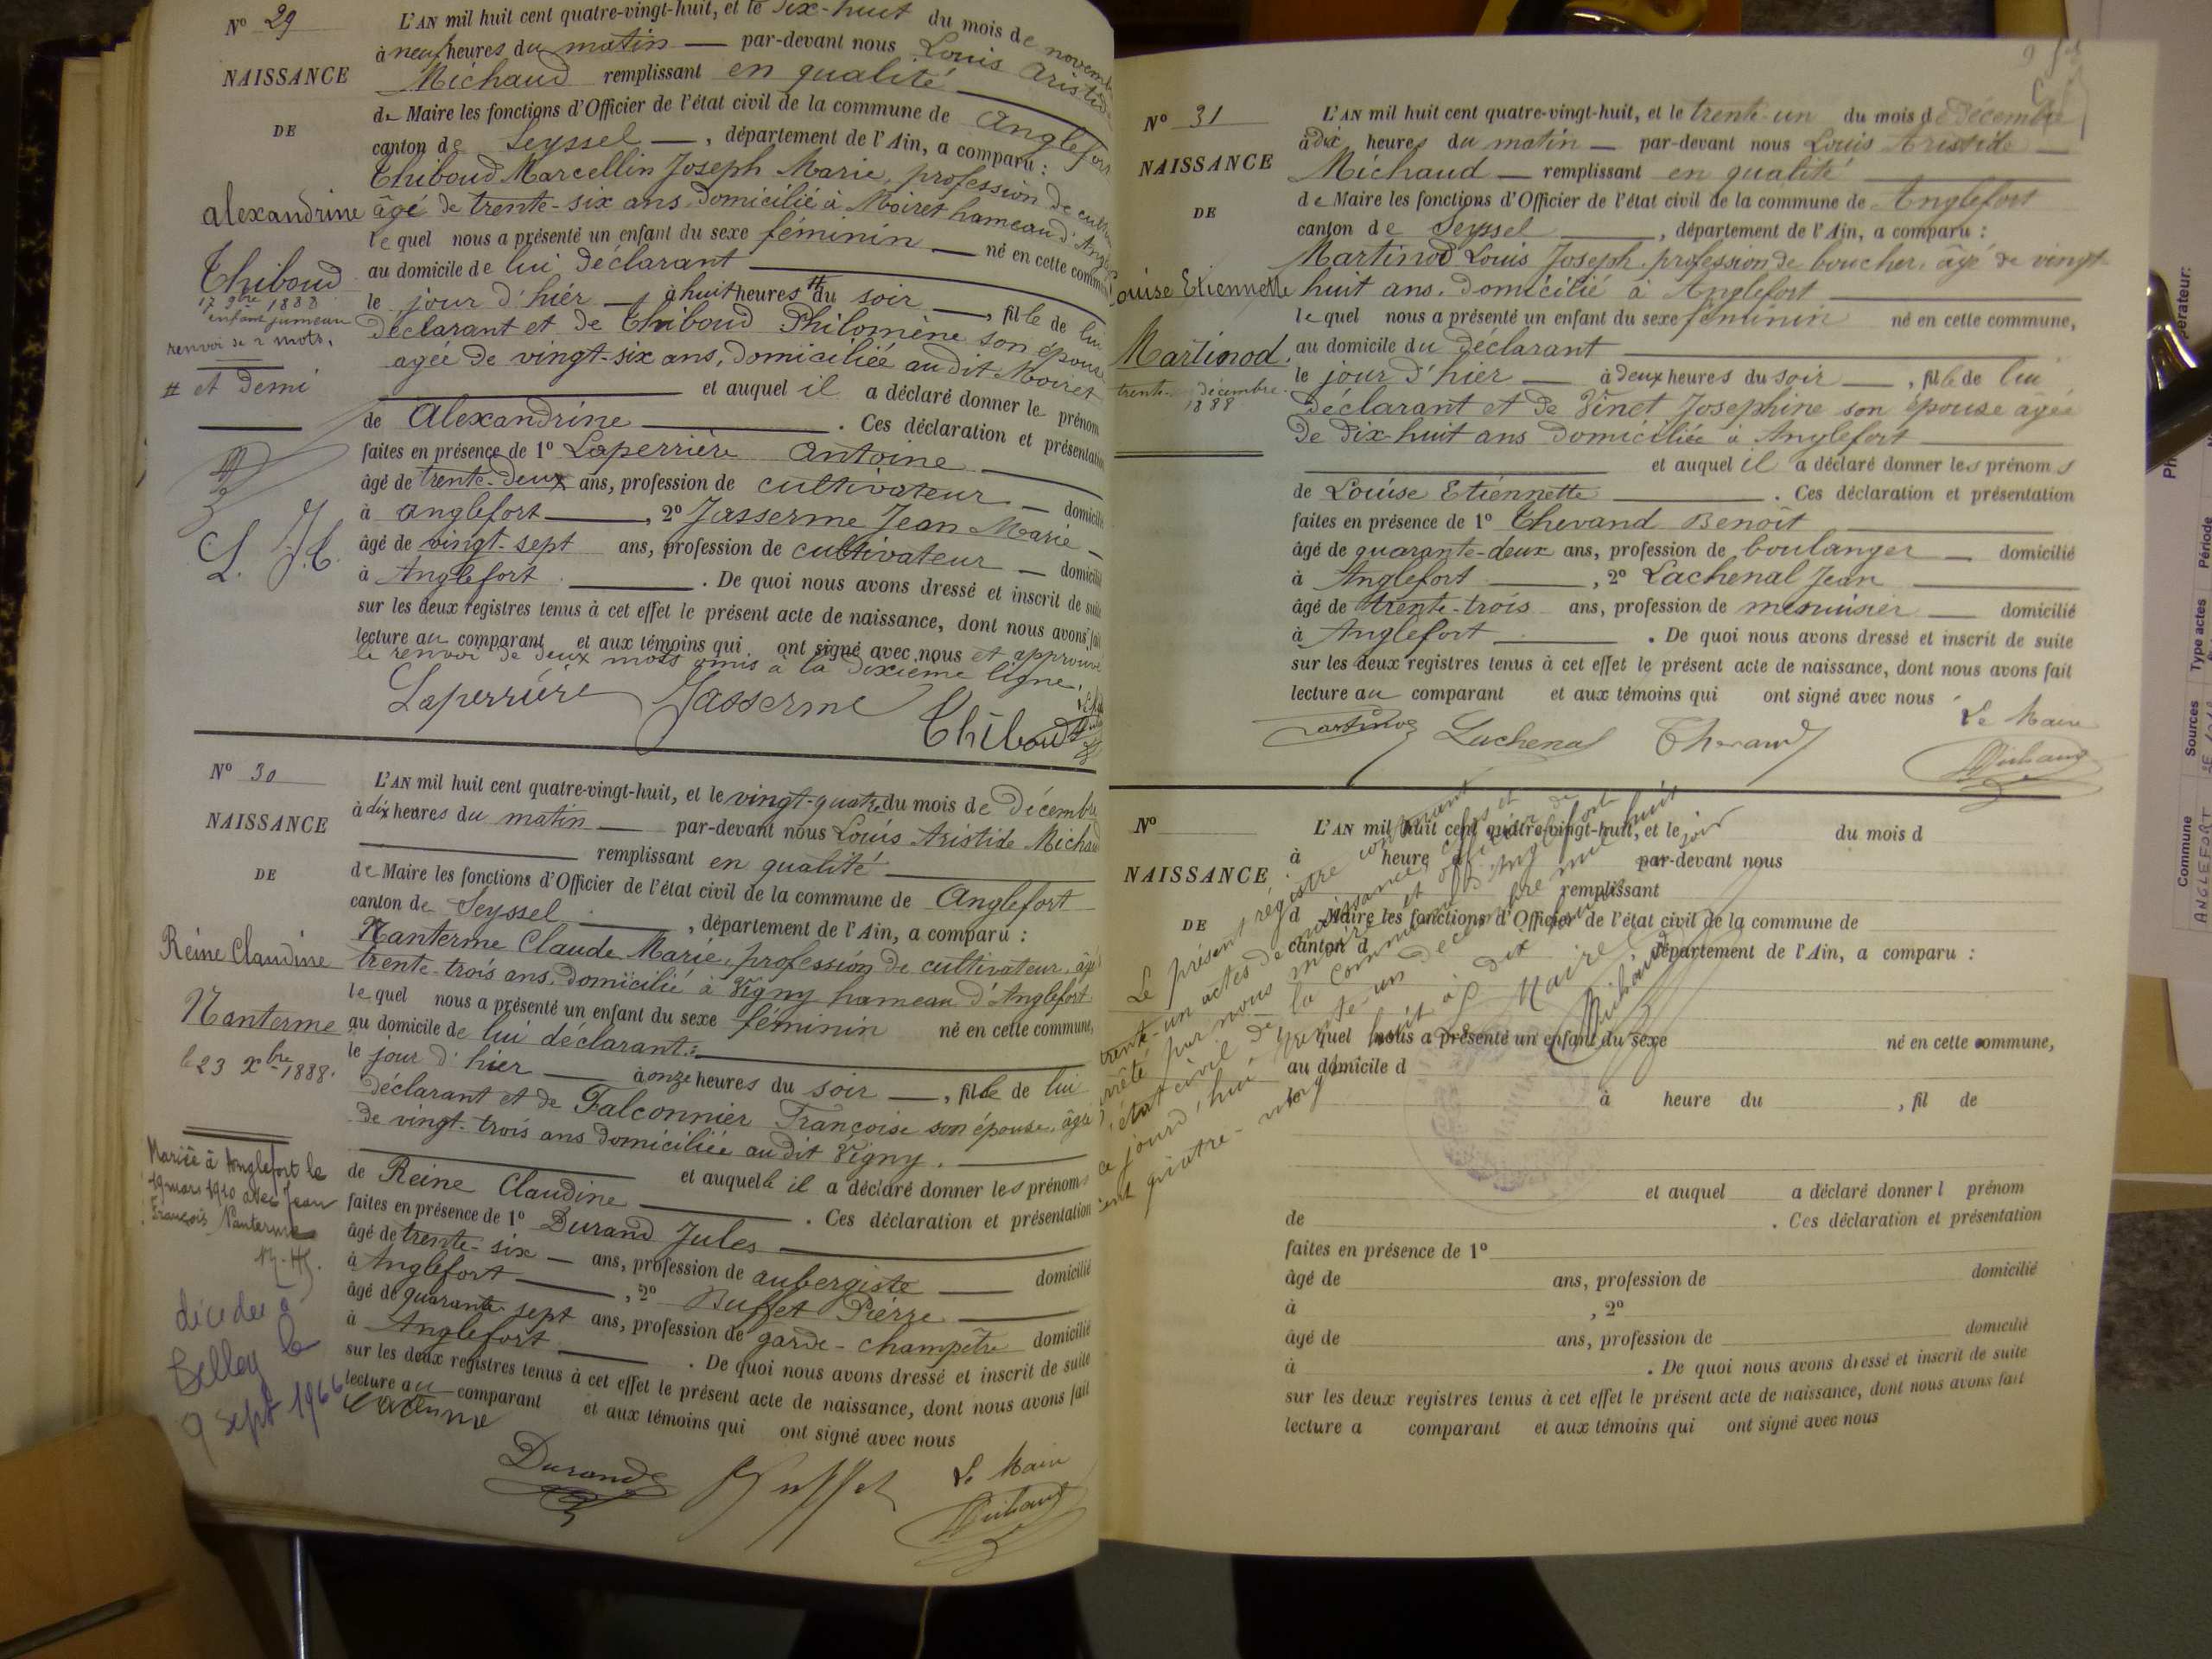 N° 29
NAISSANCE
DE
Alexandrine
Thiboud
17 9bre 1888
enfant jumeau
renvoi de 2 mots.
# et demi
L. J. T.
L'AN mil huit cent quatre-vingt-huit, et le dix-huit du mois de novembre
à neuf heures du matin — par-devant nous Louis Aristide
Michaud remplissant en qualité
de Maire les fonctions d'Officier de l'état civil de la commune de Anglefort
canton de Seyssel —, département de l'Ain, a comparu :
Thiboud Marcellin Joseph Marie, profession de
âgé de trente-six ans domicilié à Moiret hameau d'
le quel nous a présenté un enfant du sexe féminin — né en cette commune
au domicile de lui déclarant
le jour d'hier — à huit heures # du soir —, fille de lui
déclarant et de Thiboud Philomène son épouse
agée de vingt-six ans, domiciliée au dit Moiret
et auquel il a déclaré donner le prénom
de Alexandrine . Ces déclaration et présentation
faites en présence de 1° Laperrière Antoine
âgé de trente-deux ans, profession de cultivateur — domicilié
à Anglefort —, 2° Jasserme Jean Marie —
âgé de vingt-sept ans, profession de cultivateur — domicilié
à Anglefort . De quoi nous avons dressé et inscrit de suite
sur les deux registres tenus à cet effet le présent acte de naissance, dont nous avons fait
lecture au comparant et aux témoins qui ont signé avec nous et approuvé
le renvoi de deux mots omis à la dixième ligne.
Laperrière Jasserme Thiboud
N° 30
NAISSANCE
DE
Reine Claudine
Nanterme
le 23 Xbre 1888.
Mariée à Anglefort le
19 mars 1910 avec Jean
François Nanterme
décédée à
Belley le
9 sept 1966
L'AN mil huit cent quatre-vingt-huit, et le vingt-quatre du mois de Décembre
à dix heures du matin — par-devant nous Louis Aristide Michaud
remplissant en qualité
de Maire les fonctions d'Officier de l'état civil de la commune de Anglefort
canton de Seyssel , département de l'Ain, a comparu :
Nanterme Claude Marie, profession de cultivateur, âgé
trente-trois ans, domicilié à Vigny hameau d'Anglefort
le quel nous a présenté un enfant du sexe féminin né en cette commune,
au domicile de lui déclarant.
le jour d'hier — à onze heures du soir —, fille de lui
déclarant et de Falconnier Françoise son épouse, âgée
de vingt-trois ans domiciliée au dit Vigny.
et auquel il a déclaré donner les prénoms
de Reine Claudine . Ces déclaration et présentation
faites en présence de 1° Durand Jules
âgé de trente-six — ans, profession de aubergiste — domicilié
à Anglefort —, 2° Buffet Pierre
âgé de quarante sept ans, profession de garde-champêtre domicilié
à Anglefort . De quoi nous avons dressé et inscrit de suite
sur les deux registres tenus à cet effet le présent acte de naissance, dont nous avons fait
lecture au comparant et aux témoins qui ont signé avec nous
Durand Buffet Le Maire
Michaud
N° 31
NAISSANCE
DE
Louise Etiennette
Martinod.
trente décembre
1888
L'AN mil huit cent quatre-vingt-huit, et le trente-un du mois de Décembre
à dix heures du matin — par-devant nous Louis Aristide —
Michaud — remplissant en qualité
de Maire les fonctions d'Officier de l'état civil de la commune de Anglefort
canton de Seyssel , département de l'Ain, a comparu :
Martinod Louis Joseph, profession de boucher, âgé de vingt-
huit ans. domicilié à Anglefort
le quel nous a présenté un enfant du sexe féminin né en cette commune,
au domicile du déclarant
le jour d'hier — à deux heures du soir —, fille de lui
déclarant et de Vinet Josephine son épouse âgée
de dix-huit ans domiciliée à Anglefort
et auquel il a déclaré donner les prénoms
de Louise Etiennette . Ces déclaration et présentation
faites en présence de 1° Thevand Benoît
âgé de quarante-deux ans, profession de boulanger — domicilié
à Anglefort , 2° Lachenal Jean
âgé de trente-trois ans, profession de menuisier — domicilié
à Anglefort . De quoi nous avons dressé et inscrit de suite
sur les deux registres tenus à cet effet le présent acte de naissance, dont nous avons fait
lecture au comparant et aux témoins qui ont signé avec nous
Martinod Lachenal Thevand Le Maire
Michaud
N°
NAISSANCE
DE
L'AN mil huit cent quatre-vingt-huit, et le du mois d
à heure d par-devant nous
remplissant
d Maire les fonctions d'Officier de l'état civil de la commune de
canton d département de l'Ain, a comparu :
quel nous a présenté un enfant du sexe né en cette commune,
au domicile d
à heure du , fil de
et auquel a déclaré donner l prénom
de . Ces déclaration et présentation
faites en présence de 1°
âgé de ans, profession de domicilié
à , 2°
âgé de ans, profession de domicilié
à . De quoi nous avons dressé et inscrit de suite
sur les deux registres tenus à cet effet le présent acte de naissance, dont nous avons fait
lecture a comparant et aux témoins qui ont signé avec nous
Le présent régistre contenant
trente-un actes de naissance
arrêté par nous maire et officier de
l'état civil de la commune d'Anglefort
ce jourd'hui trente-un décembre mil huit
cent quatre-vingt huit à dix heures
Maire
Michaud
Commune Sources Type actes Période
ANGLEFORT